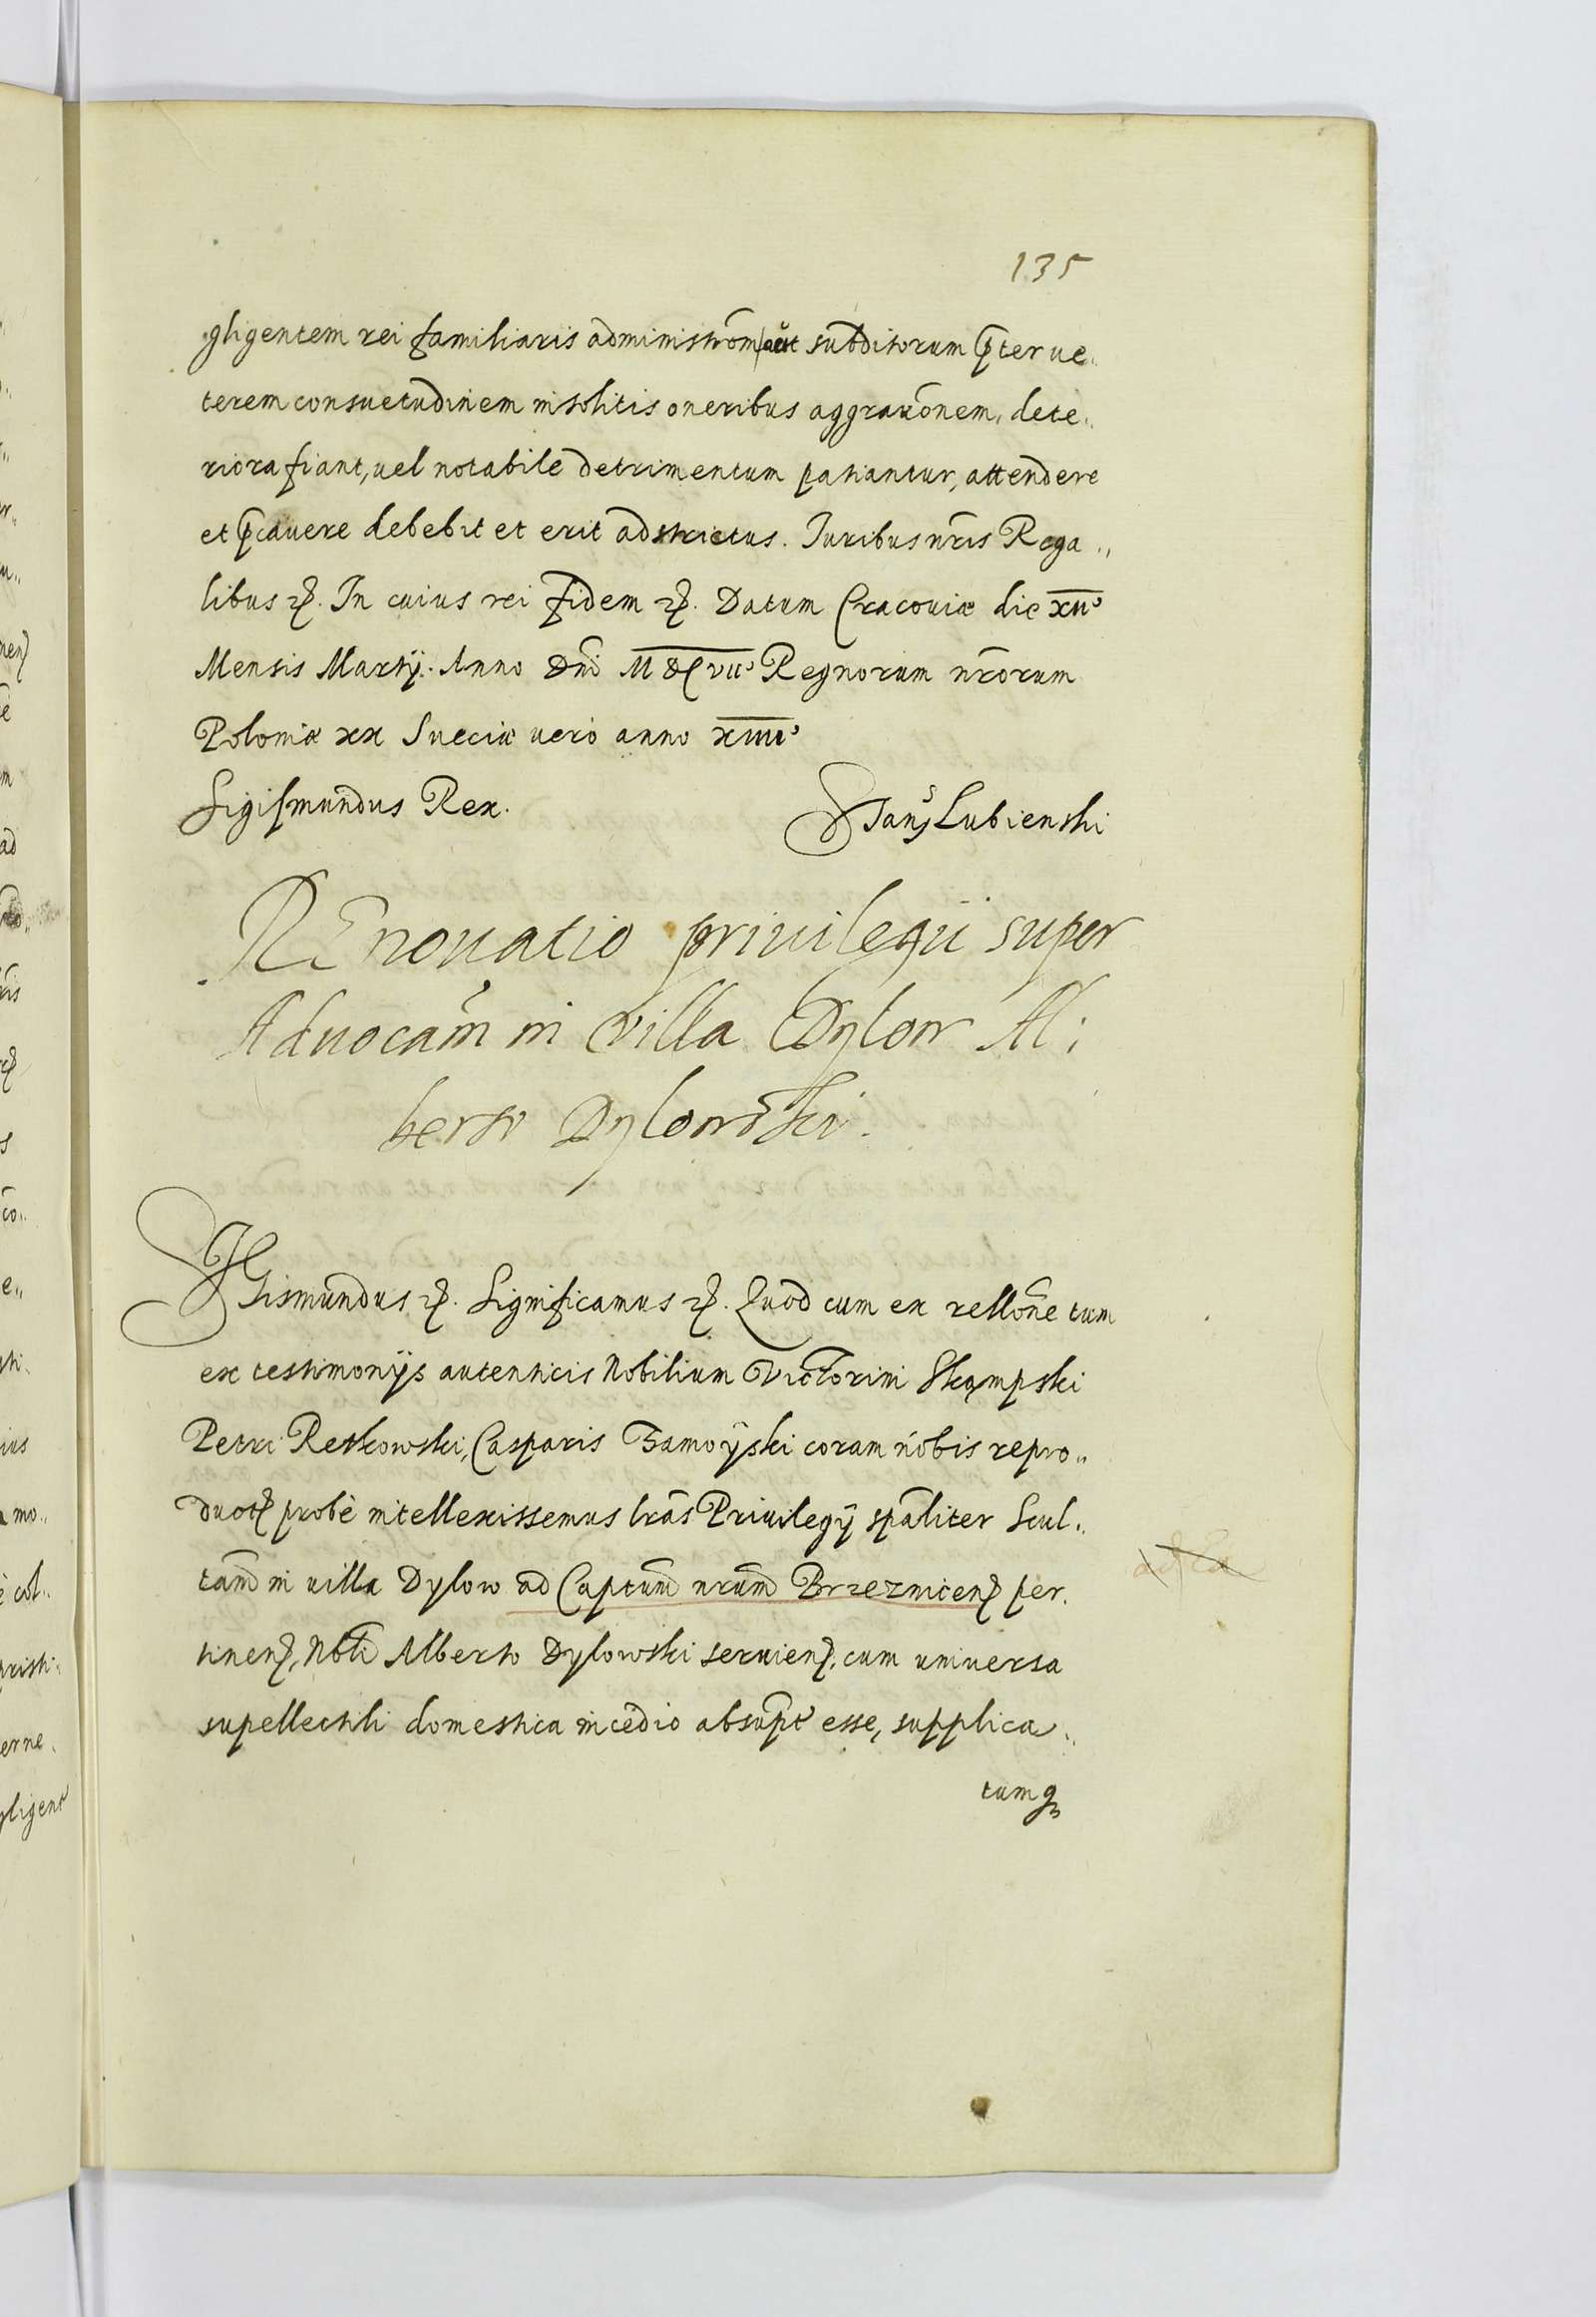 135
gligentem rei familiaris administrõm aut subditorum p̃ter ue„
terem consuetudinem insolitis oneribus aggrauõnem, dete„
riora fiant, uel notabile detrimentum patiantur, attendere
et p̃cauere debebit et erit adstrictus. Iuribus nr̃is Rega„
libus ꝛ. In cuius rei fidem ꝛ. Datum Cracouiæ die xii
Mensis Martij. Anno Dñi MDCvii Regnorum nr̃orum
Poloniæ xx Sueciæ uero anno xiiii
Sigismundus Rex. Stans Lubienski
REnouatio priuilegii super
Aduocãm in villa Dylow Al:
berto Dylowski.
SIGismundus ꝛ. Significamus ꝛ. Quod cum ex rellõne tum
ex testimonijs autenticis Nobilium Victorini Skąmpski
Petri Retkowski, Casparis Zamoÿski coram nobis repro„
duct probè intellexissemus lr̃as Priuilegÿ spãliter Scul„
tam̃ in uilla Dylow ad Captum̃ nrum̃ Brzeznicen per„
tinen, Nobli Alberto Dylowski seruien, cum uniuersa
supellectili domestica incẽdio absũpt esse, supplica„
tumq